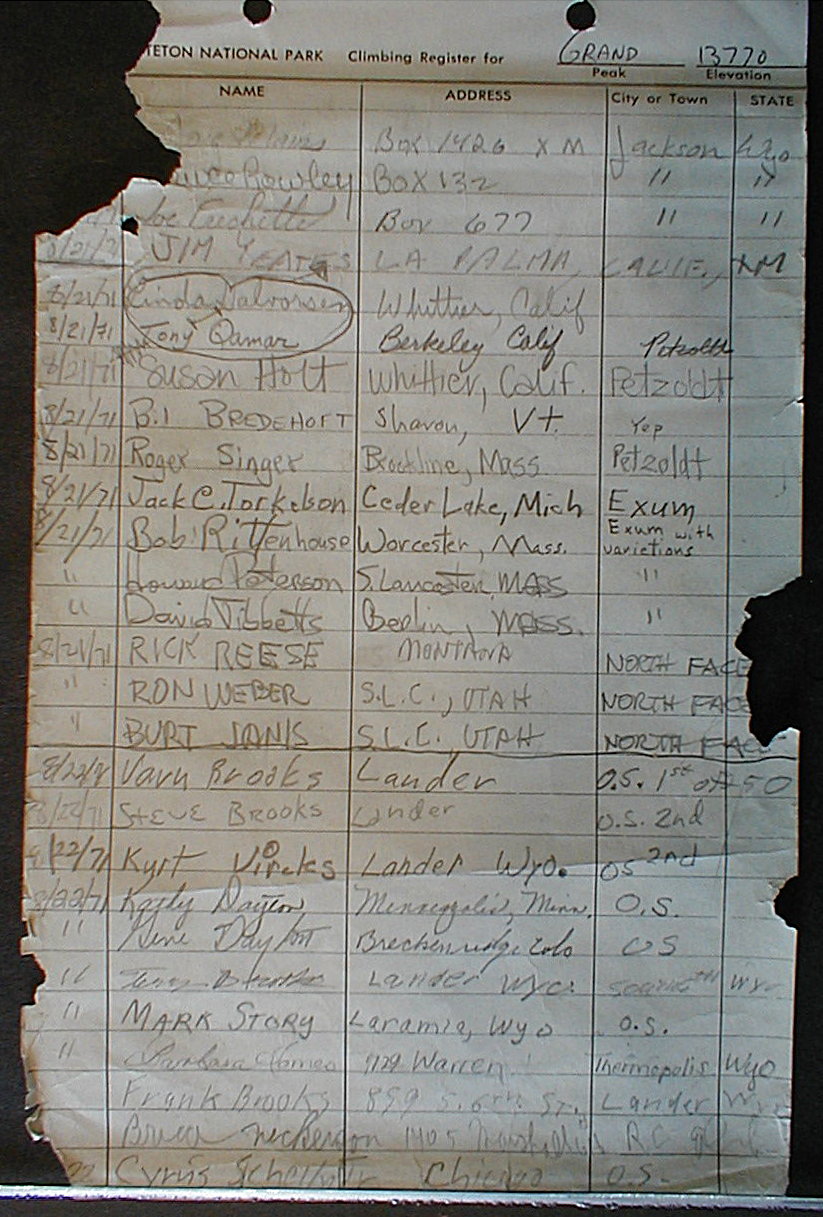 TETON NATIONAL PARK Climbing Register for GRAND 13770
Peak Elevation
NAME ADDRESS City or Town STATE
Box 1426 X M Jackson Wyo
Rowley BOX 132 " "
Joe Box 677 " "
8/21/71 JIM YEATES LA PALMA, CALIF., XM
8/21/71 Linda Halvorsen Whittier, Calif
8/21/71 Tony Qamar Berkeley Calif Petzoldt
8/21/71 Susan Holt Whittier, Calif. Petzoldt
8/21/71 B.I BREDEHOFT Sharon, Vt. Yep
8/21/71 Roger Singer Brookline, Mass. Petzoldt
8/21/71 Jack C. Torkelson Ceder Lake, Mich Exum
8/21/71 Bob Rittenhouse Worcester, Mass. Exum with varictions
" Howard Peterson S. Lancaster, MASS "
" David Tibbetts Berlin, MASS. "
8/21/71 RICK REESE MONTANA NORTH FACE
" RON WEBER S.L.C., UTAH NORTH FACE
" BURT JANIS S.L.C., UTAH NORTH FACE
8/22/71 Varn Brooks Lander O.S. 1st of 50
8/22/71 STEVE BROOKS Lander O.S. 2nd
8/22/71 Kyrt Lander Wyo. OS 2nd
8/22/71 Dayton Minneapolis, Minn. O.S.
" Gene Dayton Breckenridge Colo OS
" Lander Wyo. Wyo
" MARK STORY Laramie, Wyo O.S.
" Barbara 1129 Warren Thermopolis Wyo
Frank Brooks 859 S. 6th St. Lander Wyo
Bruce 1405 R.C.
22 Cyrus Chicago O.S.